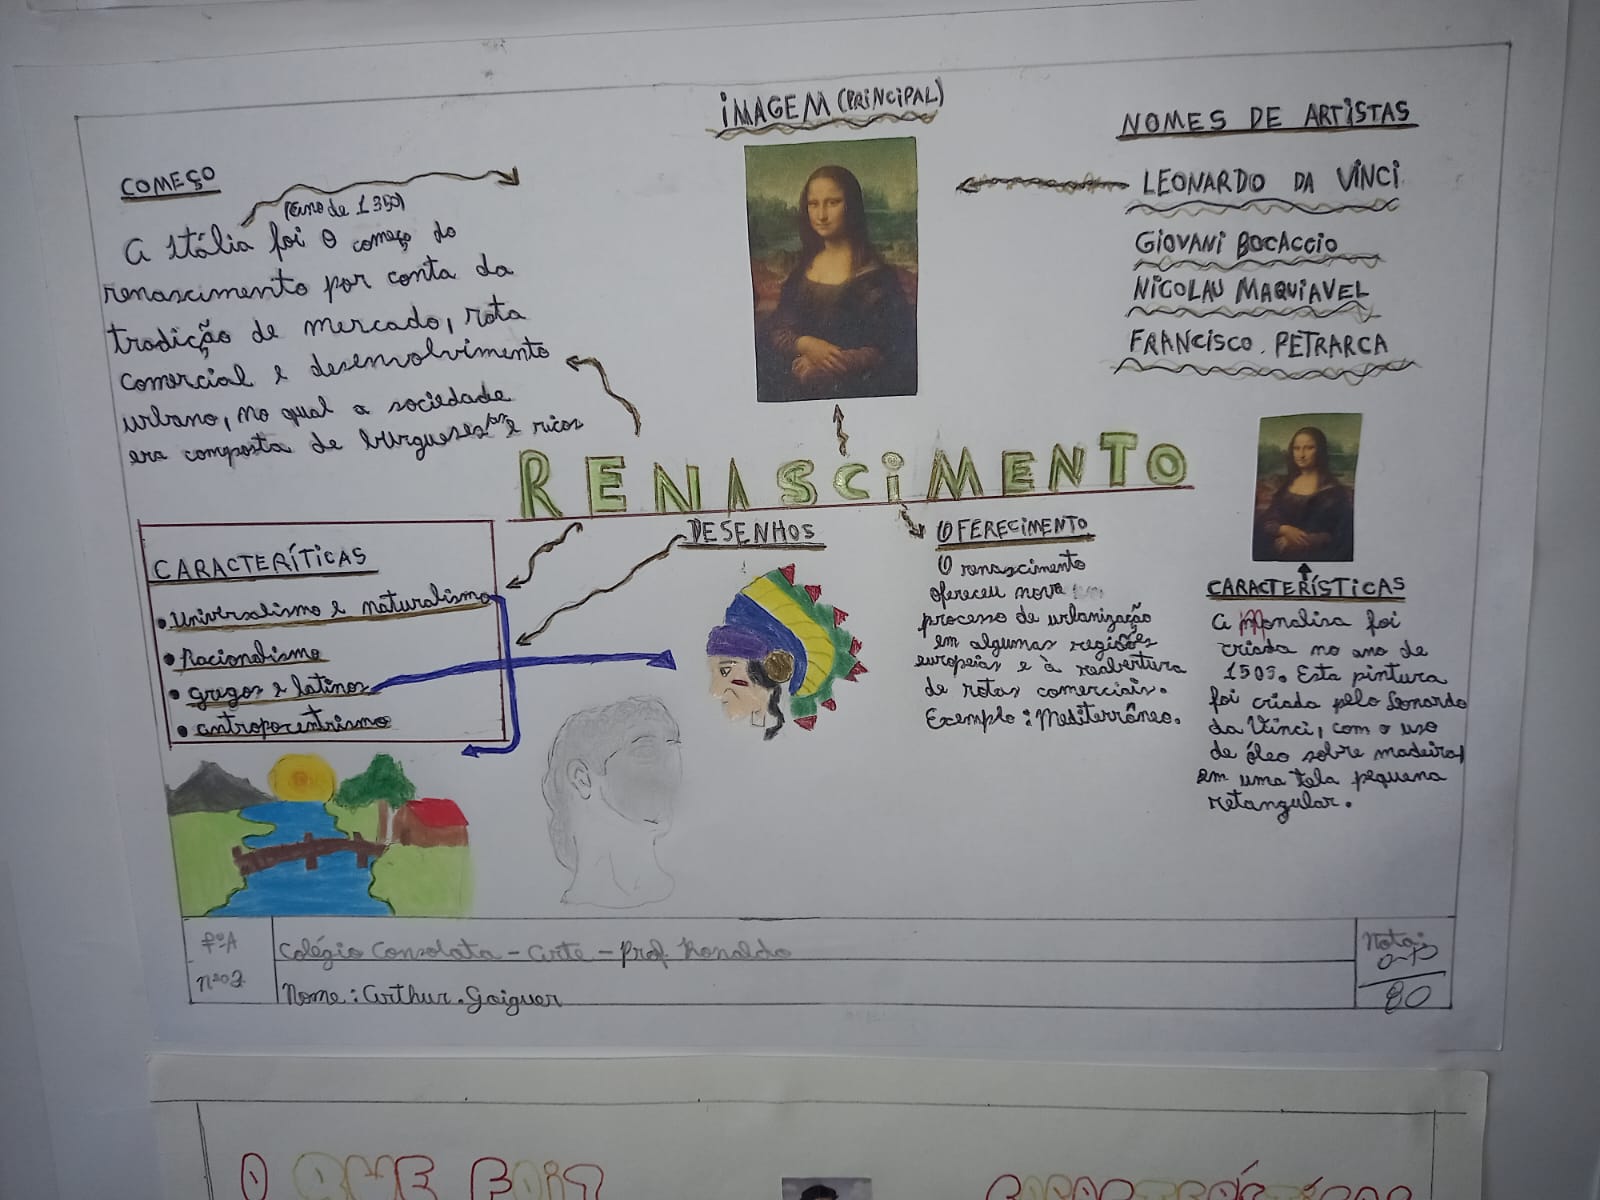 IMAGEM (PRINCIPAL)
NOMES DE ARTISTAS
LEONARDO DA VINCI
GIOVANI BOCACCIO
NICOLAU MAQUIAVEL
FRANCISCO. PETRARCA
COMEÇO
(Ano de 1350)
A Itália foi o começo do
renascimento por conta da
tradição de mercado, rota
comercial e desenvolvimento
urbano, no qual a sociedade
era composta de burgueses e ricos
RENASCIMENTO
CARACTERÍTICAS
• Universalismo e naturalismo
• Racionalismo
• gregos e latinos
• antropocentrismo
DESENHOS
OFERECIMENTO
O renascimento
ofereceu nova
processo de urbanização
em algumas regiões
europeias e à reabertura
de rotas comerciais.
Exemplo: Mediterrâneo.
CARACTERÍSTICAS
A Monalisa foi
criada no ano de
1503. Esta pintura
foi criada pelo Leonardo
da Vinci, com o uso
de óleo sobre madeira,
em uma tela pequena
retangular.
nº02
Colégio Consolata - Arte - Prof. Ronaldo
Nome: Arthur. Gaiguer
Nota:
80
O QUE FOI?